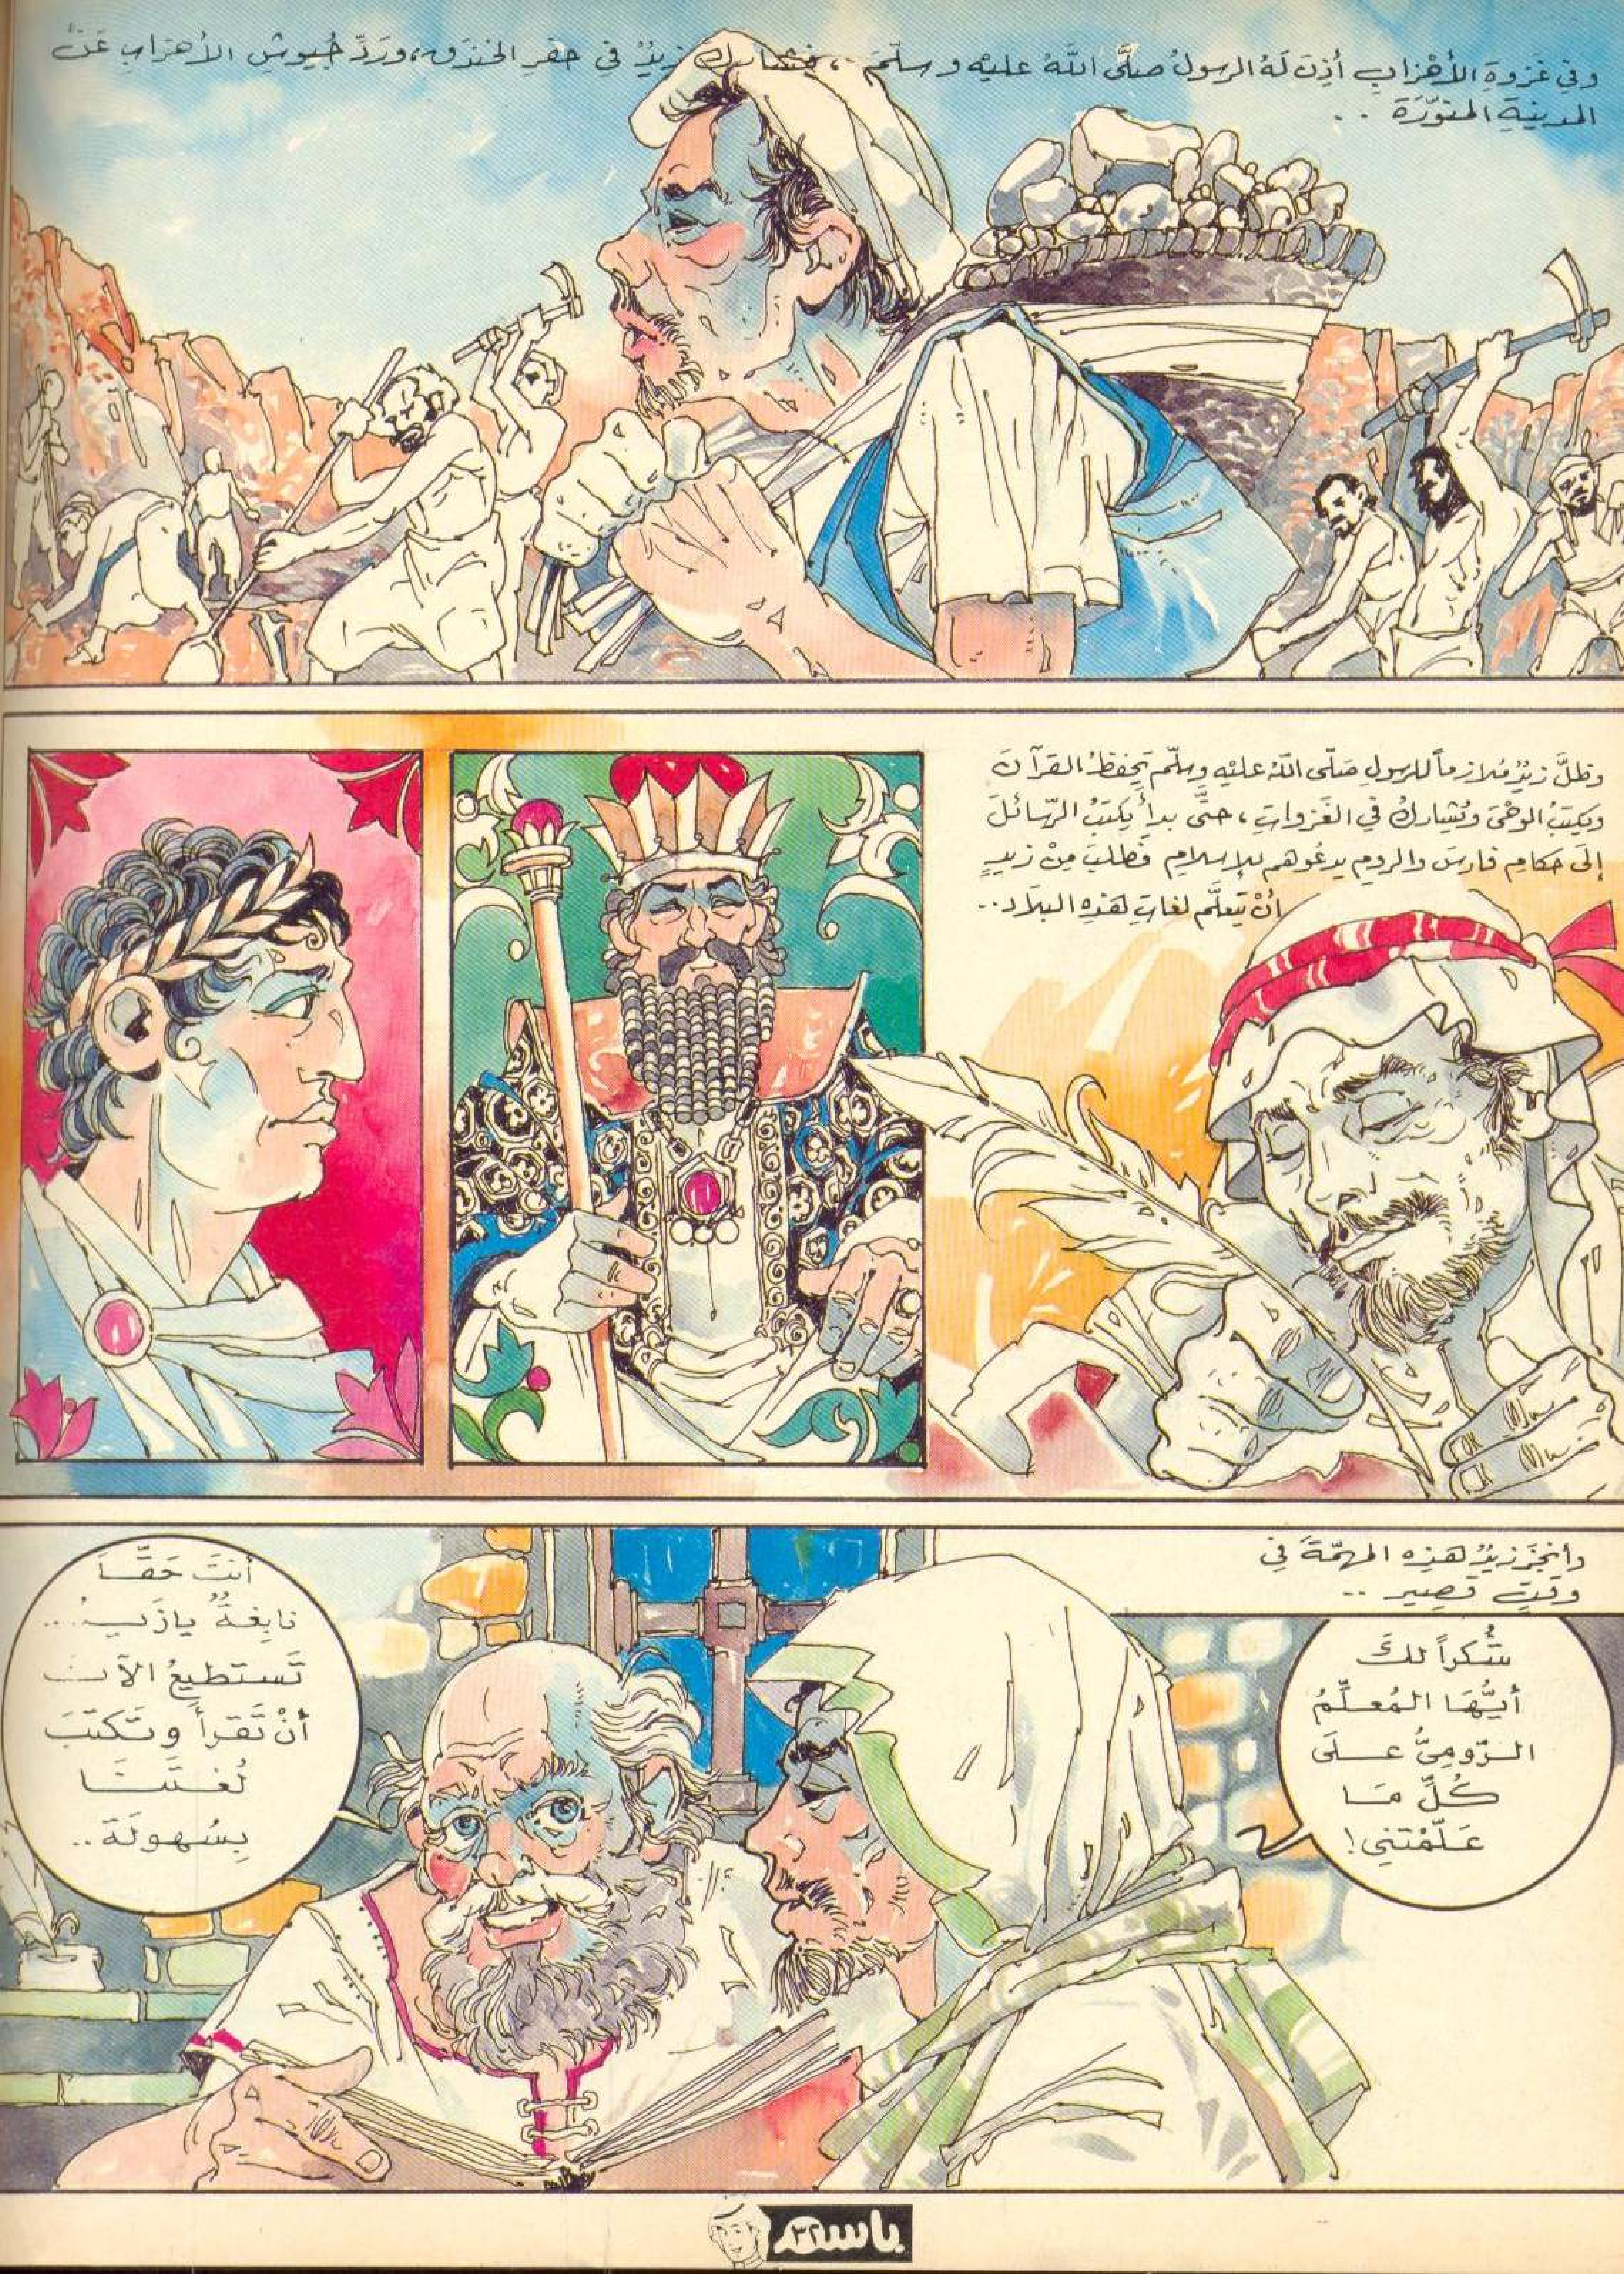 وفي غَزوةِ الأَهْزابِ أَذِنَ لَهُ الرسولُ صلَّى اللهُ عليه وسلَّمَ.، فشارك زيدٌ في حفرِ الخندقِ، ورَدِّ جُيوشِ الأهزابِ عَنْ
المدينةِ المنوَّرَةَ ..
وظلَّ زيدٌ مُلازماً للرسولِ صَلّى اللهُ عليْهِ وسلّم يَحفظُ القرآنَ
ويكتبُ الوحْيَ ويُشاركُ في الغَزواتِ، حتَّى بدأَ يكتبُ الرّسائلَ
إلَى حكامِ فارسَ والرومِ يدعُوهم للإسلامِ فطلبَ مِنْ زيدٍ
أنْ يتعلَّم لغاتِ هَذهِ البلاَدِ..
وأنجزَ زيدٌ هَذِه المهمّةَ في
وقتٍ قصيرٍ ..
شُكراً لكَ
أيُّهَا المُعلِّمُ
الرّوميُّ علَى
كُلِّ مَا
عَلَّمْتَنِي!
أنتَ حَقّاً
نابِغةٌ يازَيدُ...
تَستطيعُ الآنَ
أنْ تَقرأَ وتَكتبَ
لُغتَنَا
بِسُهولَة..
باسم
٣٢